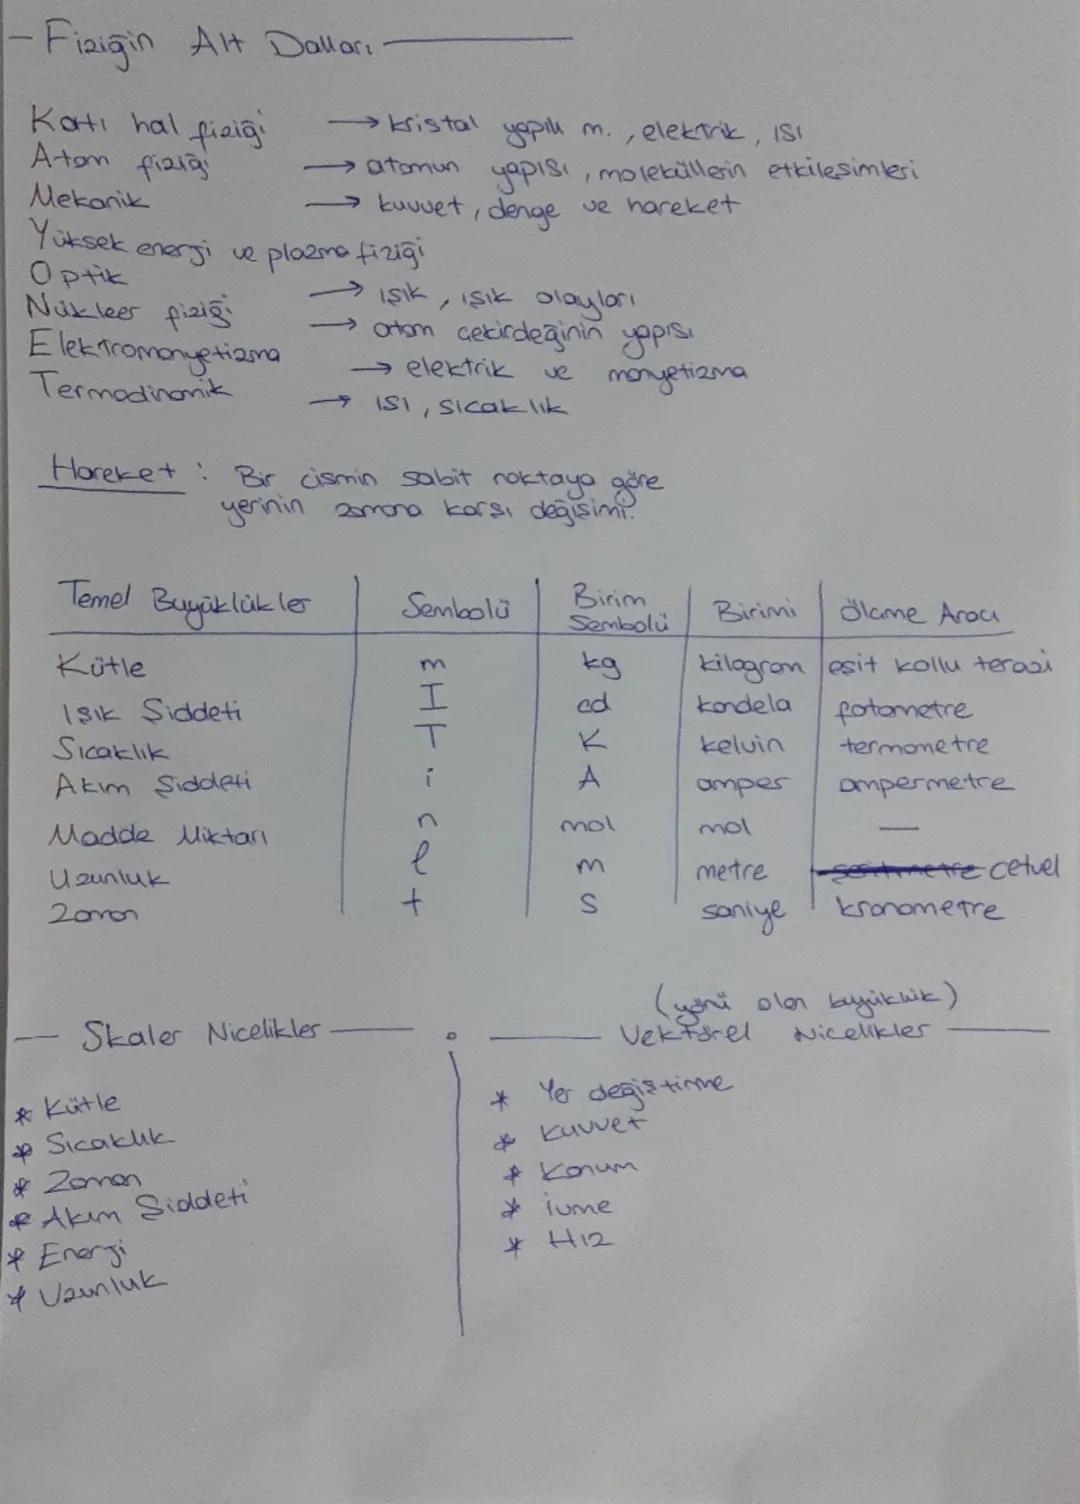 - Fiziğin Alt Dalları
Katı hal fiziği → kristal yapılı m., elektrik, ısı
Atom fiziği → atomun yapısı, moleküllerin etkileşimleri
Mekanik → kuvvet, denge ve hareket
Yüksek enerji ve plazma fiziği
Optik → ışık, ışık olayları
Nükleer fiziği → atom çekirdeğinin yapısı
Elektromanyetizma → elektrik ve manyetizma
Termodinamik → ısı, sıcaklık
Hareket : Bir cismin sabit noktaya göre
yerinin zamana karşı değişimi.
Temel Büyüklükler Sembolü Birim Sembolü Birimi Ölçme Aracı
Kütle m kg kilogram eşit kollu terazi
Işık Şiddeti I cd kandela fotometre
Sıcaklık T K kelvin termometre
Akım Şiddeti i A amper ampermetre
Madde Miktarı n mol mol —
Uzunluk l m metre cetvel
Zaman t s saniye kronometre
(yönü olan büyüklük)
— Skaler Nicelikler — — Vektörel Nicelikler —
* Kütle * Yer değiştirme
* Sıcaklık * Kuvvet
* Zaman * Konum
* Akım Şiddeti * ivme
* Enerji * Hız
* Uzunluk